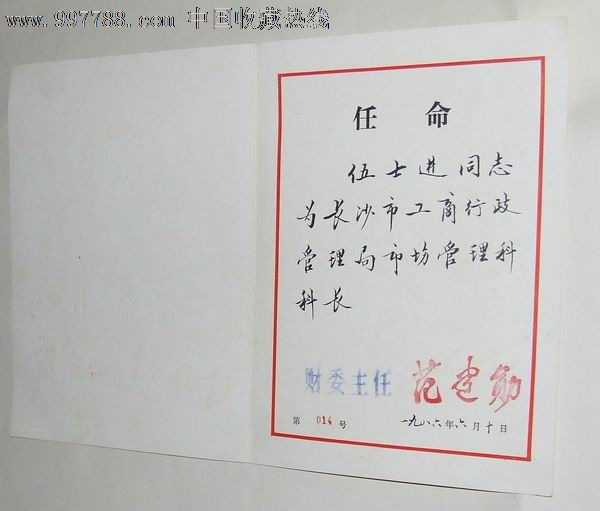 www.997788.com 中国收藏热线
任命
伍士进同志
为长沙市工商行政
管理局市场管理科
科长
财委主任 范建勋
第 014 号 一九八六年六月十日